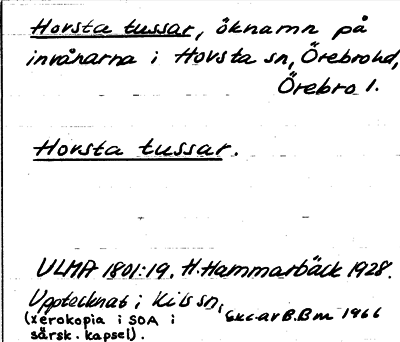 Hovsta tussar, öknamn på
invånarna i Hovsta sn, Örebrohd,
Örebro l.
Hovsta tussar.
ULMA 1801:19. H. Hammarbäck 1928.
Upptecknat i Kils sn,
(xerokopia i SOA i
särsk. kapsel). Exc. av B. Bm 1966